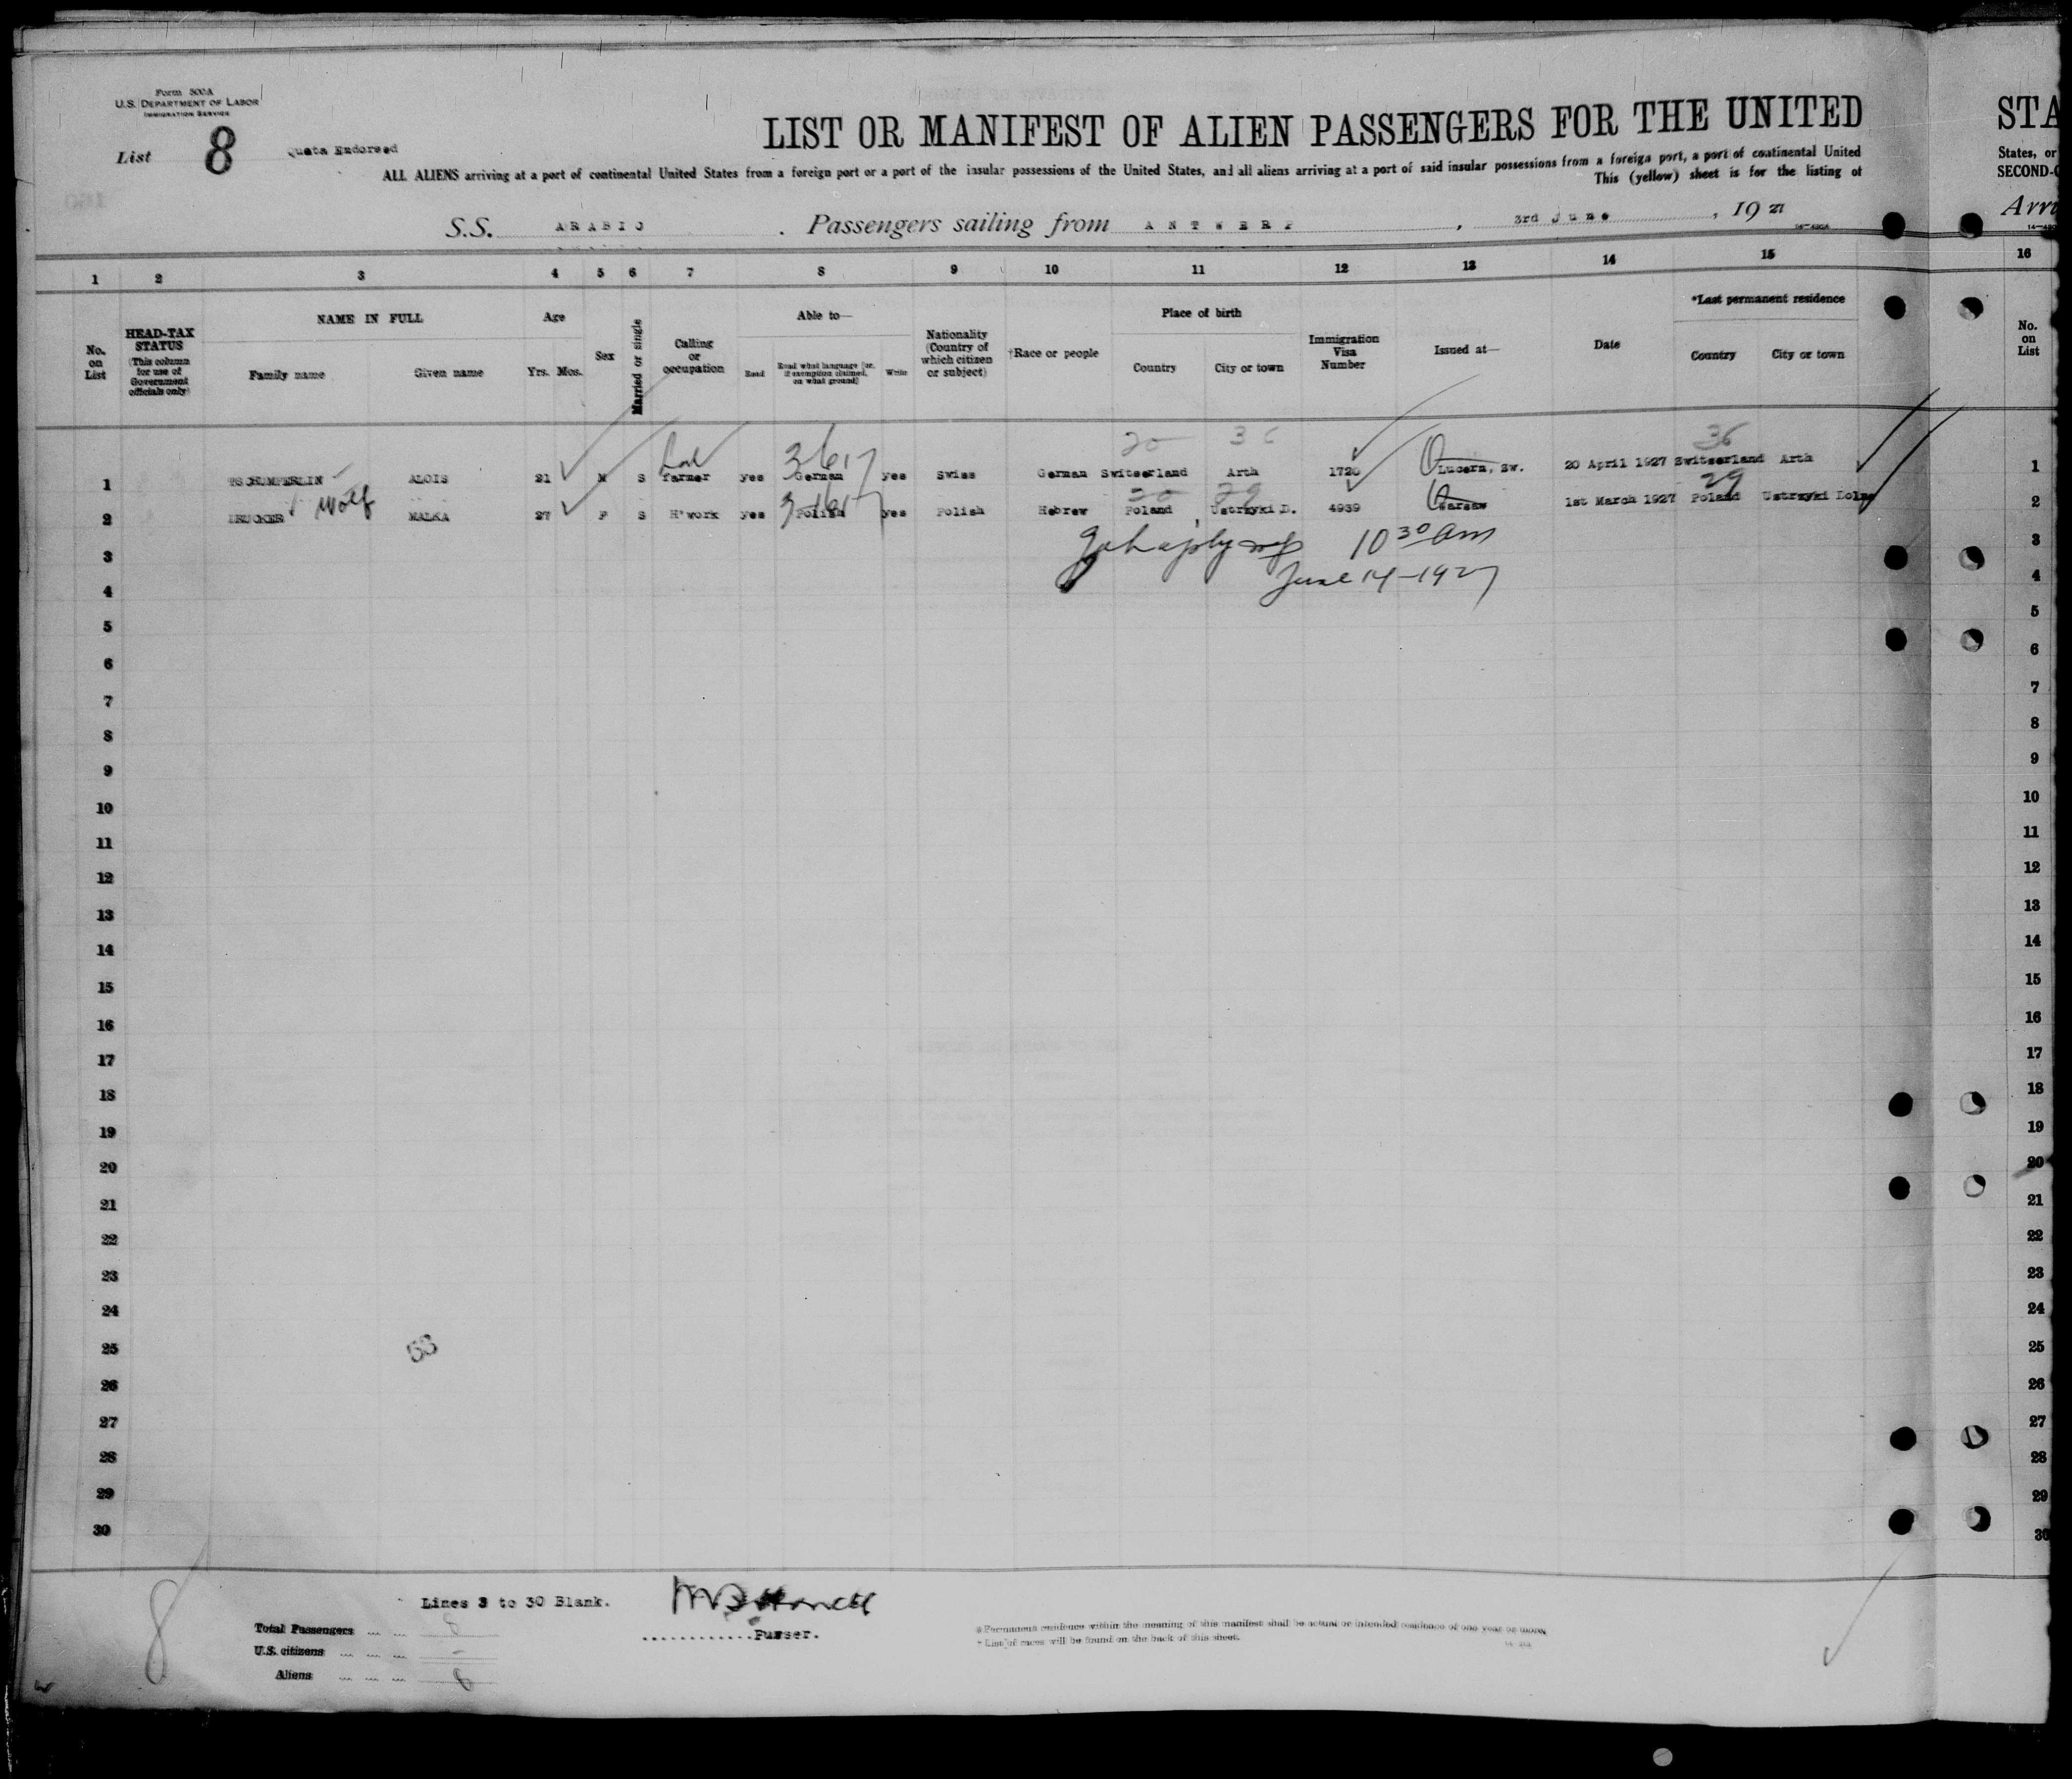 Form 500A
U.S. DEPARTMENT OF LABOR
IMMIGRATION SERVICE
List 8 Quota Endorsed
LIST OR MANIFEST OF ALIEN PASSENGERS FOR THE UNITED
ALL ALIENS arriving at a port of continental United States from a foreign port or a port of the insular possessions of the United States, and all aliens arriving at a port of said insular possessions from a foreign port, a port of continental United
This (yellow) sheet is for the listing of
S.S. ARABIC . Passengers sailing from ANTWERP , 3rd June , 19 27
STA
States, or
SECOND-C
Arri
1 2 3 4 5 6 7 8 9 10 11 12 13 14 15 16
No. on List
HEAD-TAX STATUS (This column for use of Government officials only)
NAME IN FULL
Family name Given name
Age
Yrs. Mos.
Sex
Married or single
Calling or occupation
Able to—
Read Read what language [or, if exemption claimed, on what ground] Write
Nationality (Country of which citizen or subject)
†Race or people
Place of birth
Country City or town
Immigration Visa Number
Issued at—
Date
*Last permanent residence
Country City or town
No. on List
20 36 36
3617
1 TSCHUMPERLIN ALOIS 21 M S farmer yes German yes Swiss German Switzerland Arth 1720 Lucern, Sw. 20 April 1927 Switzerland Arth 1
Wolf 29
2 DRUCKER MALKA 27 F S H'work yes Polish yes Polish Hebrew Poland Ustrzyki D. 4939 Warsaw 1st March 1927 Poland Ustrzyki Dolne 2
3 10 30 am 3
4 June 14-1927 4
5 5
6 6
7 7
8 8
9 9
10 10
11 11
12 12
13 13
14 14
15 15
16 16
17 17
18 18
19 19
20 20
21 21
22 22
23 23
24 24
25 53 25
26 26
27 27
28 28
29 29
30 30
8
Lines 3 to 30 Blank.
Total Passengers
U.S. citizens -
Aliens
Purser.
*Permanent residence within the meaning of this manifest shall be actual or intended residence of one year or more.
† List of races will be found on the back of this sheet.